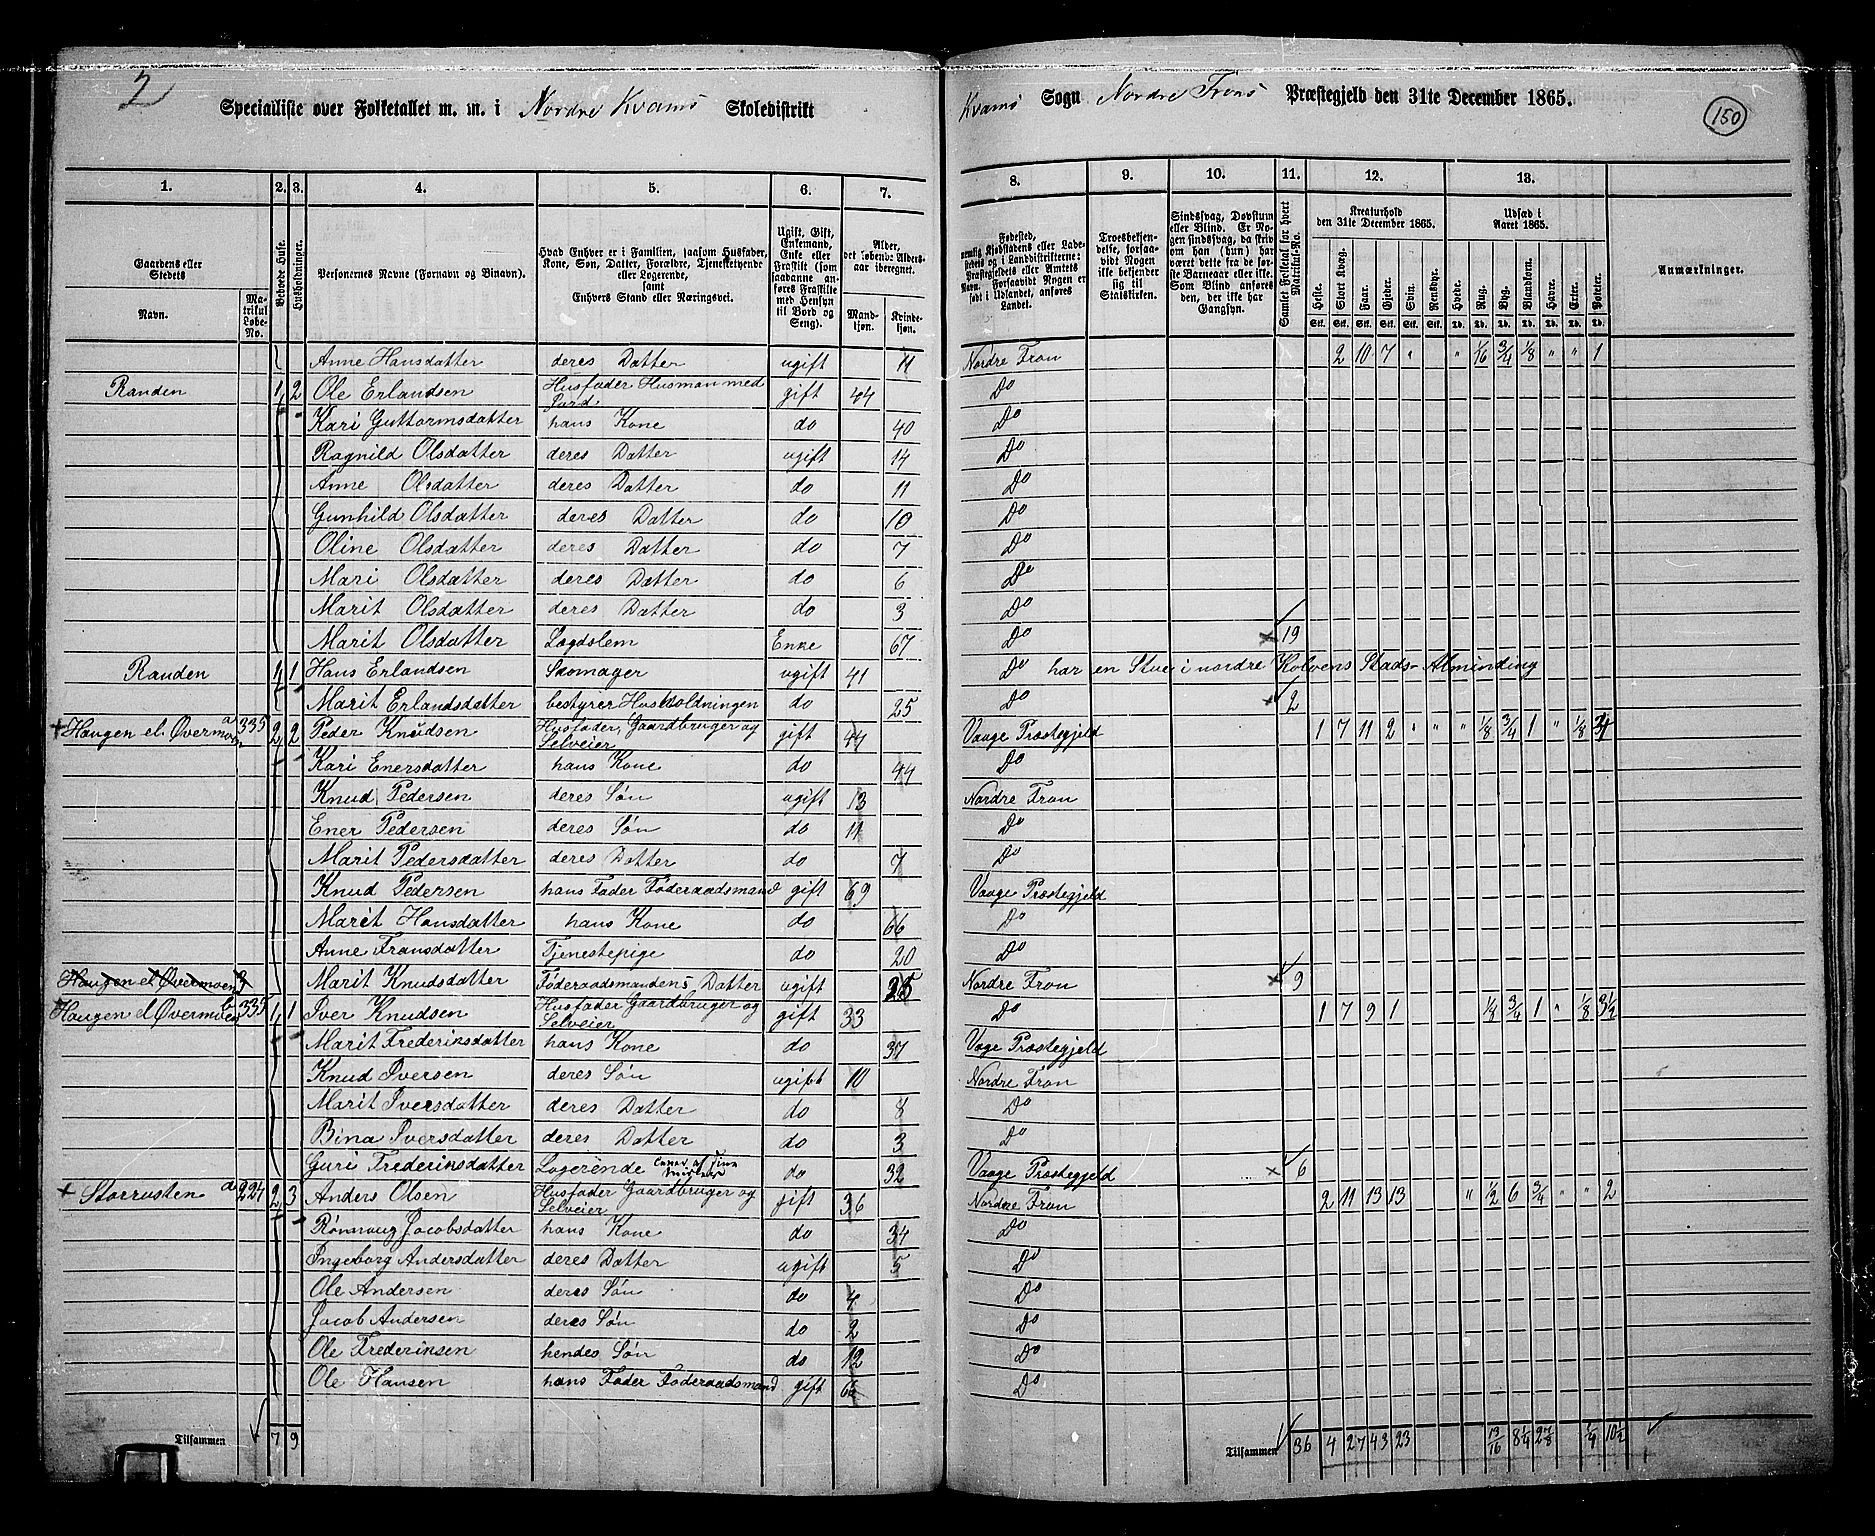 2
Specialliste over Folketallet m. m. i Nordre Kvams Skoledistrikt Kvams Sogn Nordre Frons Præstegjeld den 31te December 1865.
150
1. 2. 3. 4. 5. 6. 7. 8. 9. 10. 11. 12. 13.
Gaardens eller Stedets
Navn.
Matrikul Løbe-No.
Beboede Huse.
Husholdninger.
Personernes Navne (Fornavn og Binavn).
Hvad Enhver er i Familien, saasom Husfader, Kone, Søn, Datter, Forældre, Tjenestetyende eller Logerende,
samt
Enhvers Stand eller Næringsvei.
Ugift, Gift, Enkemand, Enke eller Fraskilt (som saadanne anføres Fraskilte med Hensyn til Bord og Seng).
Alder, det løbende Aldersaar iberegnet.
Mandkjøn. Kvindekjøn.
Fødested,
nemlig Kjøbstadens eller Ladestedets og i Landdistrikterne: Præstegjeldets eller Amtets Navn. Forsaavidt Nogen er født i Udlandet, anføres Landet.
Troesbekjendelse, forsaavidt Nogen ikke bekjender sig til Statskirken.
Sindssvag, Døvstum eller Blind. Er Nogen sindssvag, da skriv om han (hun) har været dette fra de første Barneaar eller ikke. Som Blind anføres den, der ikke har Gangsyn.
Samlet Folketal for hvert Matrikul-No.
Kreaturhold
den 31te December 1865.
Heste. Stort Kvæg. Faar. Gjeder. Svin. Rensdyr.
Udsæd i
Aaret 1865.
Hvede. Rug. Byg. Blandkorn. Havre. Erter. Poteter.
Anmærkninger.
Anne Hansdatter deres Datter ugift 11 Nordre Fron 2 10 7 " " 1/16 3/4 1/8 " " 1
Randen 1 2 Ole Erlandsen Husfader Husman med Jord gift 44 Do
Kari Guttormsdatter hans Kone do 40 Do
Ragnild Olsdatter deres Datter ugift 14 Do
Anne Olsdatter deres Datter do 11 Do
Gunhild Olsdatter deres Datter do 10 Do
Oline Olsdatter deres Datter do 7 Do
Mari Olsdatter deres Datter do 6 Do
Marit Olsdatter deres Datter do 3 Do
Marit Olsdatter Lægdslem Enke 67 Do 19
Randen 1 1 Hans Erlandsen Skomager ugift 41 Do har en Stue i nordre Kolvens Stads-Alminding
Marit Erlandsdatter bestyrer Husholdningen do 25 Do 2
Haugen el. Øvermoen 335 a 2 2 Peder Knudsen Husfader, Gaardbruger og Selveier gift 44 Vaage Præstegjeld 1 7 11 2 " " " 1/8 3/4 1 " 1/8
Kari Enersdatter hans Kone do 44 Do
Knud Pedersen deres Søn ugift 13 Nordre Fron
Ener Pedersen deres Søn do 11 Do
Marit Pedersdatter deres Datter do 7 Do
Knud Pedersen hans Fader Føderaadsmand gift 69 Vaage Præstegjeld
Marit Hansdatter hans Kone do 66 Do
Anne Fransdatter Tjenestepige do 20 Do
Haugen el Øvermoen Marit Knudsdatter Føderaadsmandens Datter ugift Nordre Fron 9
Haugen el Øvermoen 335 b 1 1 Iver Knudsen Husfader Gaardbruger og Selveier gift 33 Do 1 7 9 1 1/8 3/4 1 " 1/8 3 1/2
Marit Frederiksdatter hans Kone do 37 Vage Præstegjeld
Knud Iversen deres Søn ugift 10 Nordre Fron
Marit Iversdatter deres Datter do 8 Do
Bina Iversdatter deres Datter do 3 Do
Guri Frederiksdatter Logerende Lever af sine Midler do 32 Vaage Præstegjeld 6
Storrusten 224 a 2 3 Anders Olsen Husfader Gaardbruger og Selveier gift 36 Nordre Fron 2 11 13 13 " 1/2 6 3/4 " " 2
Rønnaug Jacobsdatter hans Kone do 34 Do
Ingeborg Andersdatter deres Datter ugift 5 Do
Ole Andersen deres Søn do 4 Do
Jacob Andersen deres Søn do 2 Do
Ole Frederiksen hendes Søn do 12 Do
Ole Hansen hans Fader Føderaadsmand gift 66 Do
Tilsammen 7 9
Tilsammen 36 4 27 43 23 19/16 8 1/4 2 7/8 1/4 10 1/2